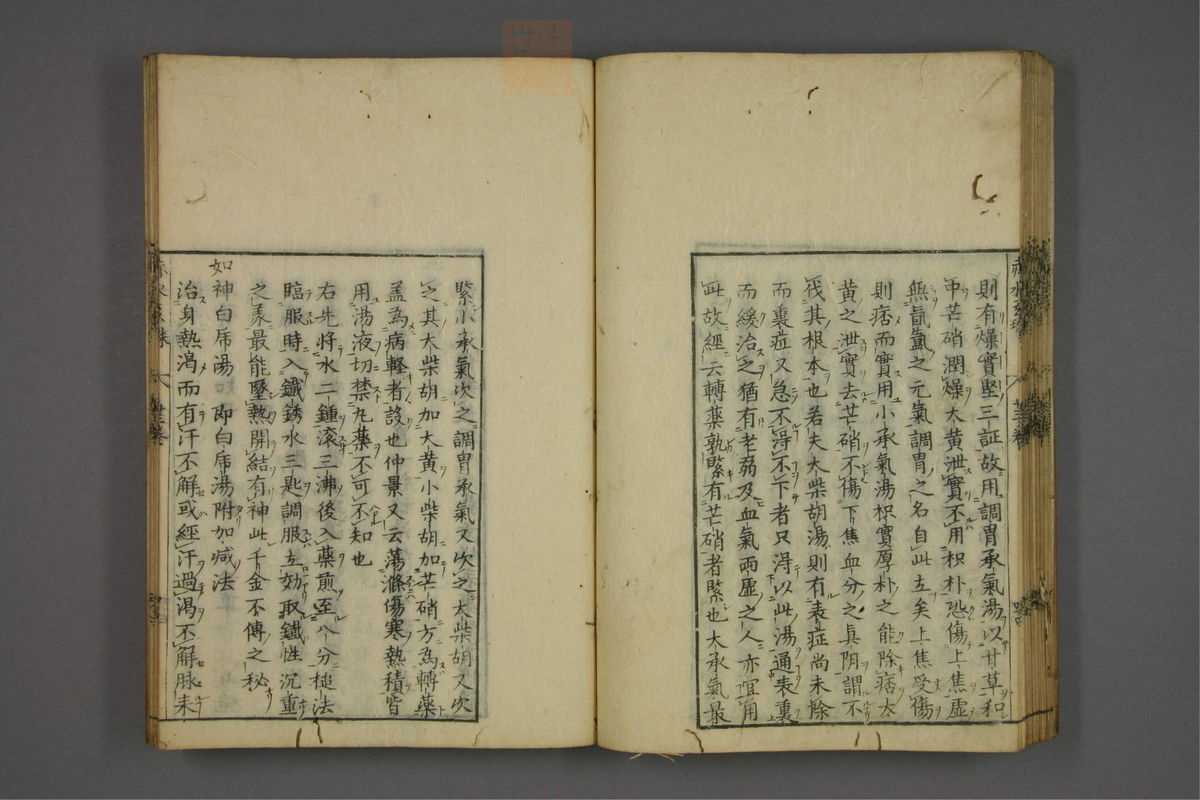 則有燥實堅三証故用調胃承氣湯以甘草和
中芒硝潤燥大黃泄實不用枳朴恐傷上焦虛
無氤氳之元氣調胃之名自此立矣上焦受傷
則痞而實用小承氣湯枳實厚朴之能除痞大
黃之泄實去芒硝不傷下焦血分之真阴謂不
伐其根本也若夫大柴胡湯則有表症尚未除
而裏症又急不得不下者只淂以此湯通表裏
而緩治之猶有老弱及血氣兩虛之人亦宜用
此故經云轉藥孰緊有芒硝者緊也大承氣最
緊小承氣次之調胃承氣又次之大柴胡又次
之其大柴胡加大黃小柴胡加芒硝方為轉藥
盖為病軽者設也仲景又云蕩滌傷寒熱積皆
用湯液切禁丸藥不可不知也
右先將水二鍾滚三沸後入藥煎至八分槌法
臨服時入鐵銹水三匙調服立効取鐵性沉重
之義最能墜熱開結有神此千金不傳之秘
如神白乕湯 即白乕湯附加减法
治身熱渴而有汗不解或經汗過渴不解脉未